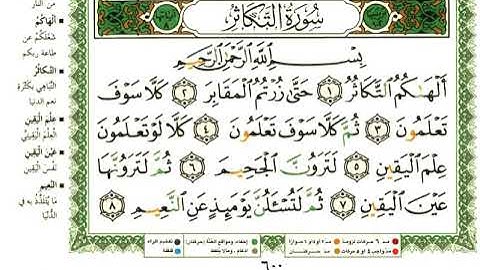 سُورَةُ التَّكَاثُرِ
بِسْمِ اللَّهِ الرَّحْمَٰنِ الرَّحِيمِ
أَلْهَىٰكُمُ ٱلتَّكَاثُرُ ١ حَتَّىٰ زُرْتُمُ ٱلْمَقَابِرَ ٢ كَلَّا سَوْفَ
تَعْلَمُونَ ٣ ثُمَّ كَلَّا سَوْفَ تَعْلَمُونَ ٤ كَلَّا لَوْ تَعْلَمُونَ
عِلْمَ ٱلْيَقِينِ ٥ لَتَرَوُنَّ ٱلْجَحِيمَ ٦ ثُمَّ لَتَرَوُنَّهَا
عَيْنَ ٱلْيَقِينِ ٧ ثُمَّ لَتُسْـَٔلُنَّ يَوْمَئِذٍ عَنِ ٱلنَّعِيمِ ٨
من النار
أَلْهَاكُمُ
شَغَلَكُمْ عن
طاعة ربكم
التَّكَاثُرُ
التَّبَاهِي بكَثْرَةِ
نعم الدنيا
عِلْمَ الْيَقِينِ
الْعِلْمَ الْيَقِينِيَّ
عَيْنَ الْيَقِينِ
نَفْسَ الْيَقِينِ
النَّعِيمِ
مَا يُتَلَذَّذُ به في
الدُّنْيَا
مد ٦ حركات لزوماً
مد ٢ أو ٤ أو ٦ جوازاً
إخفاء، ومواقع الغنَّة (حركتان)
تفخيم الراء
مد حركتان
إدغام، وما لا يُلفظ
قلقلة
٦٠٠